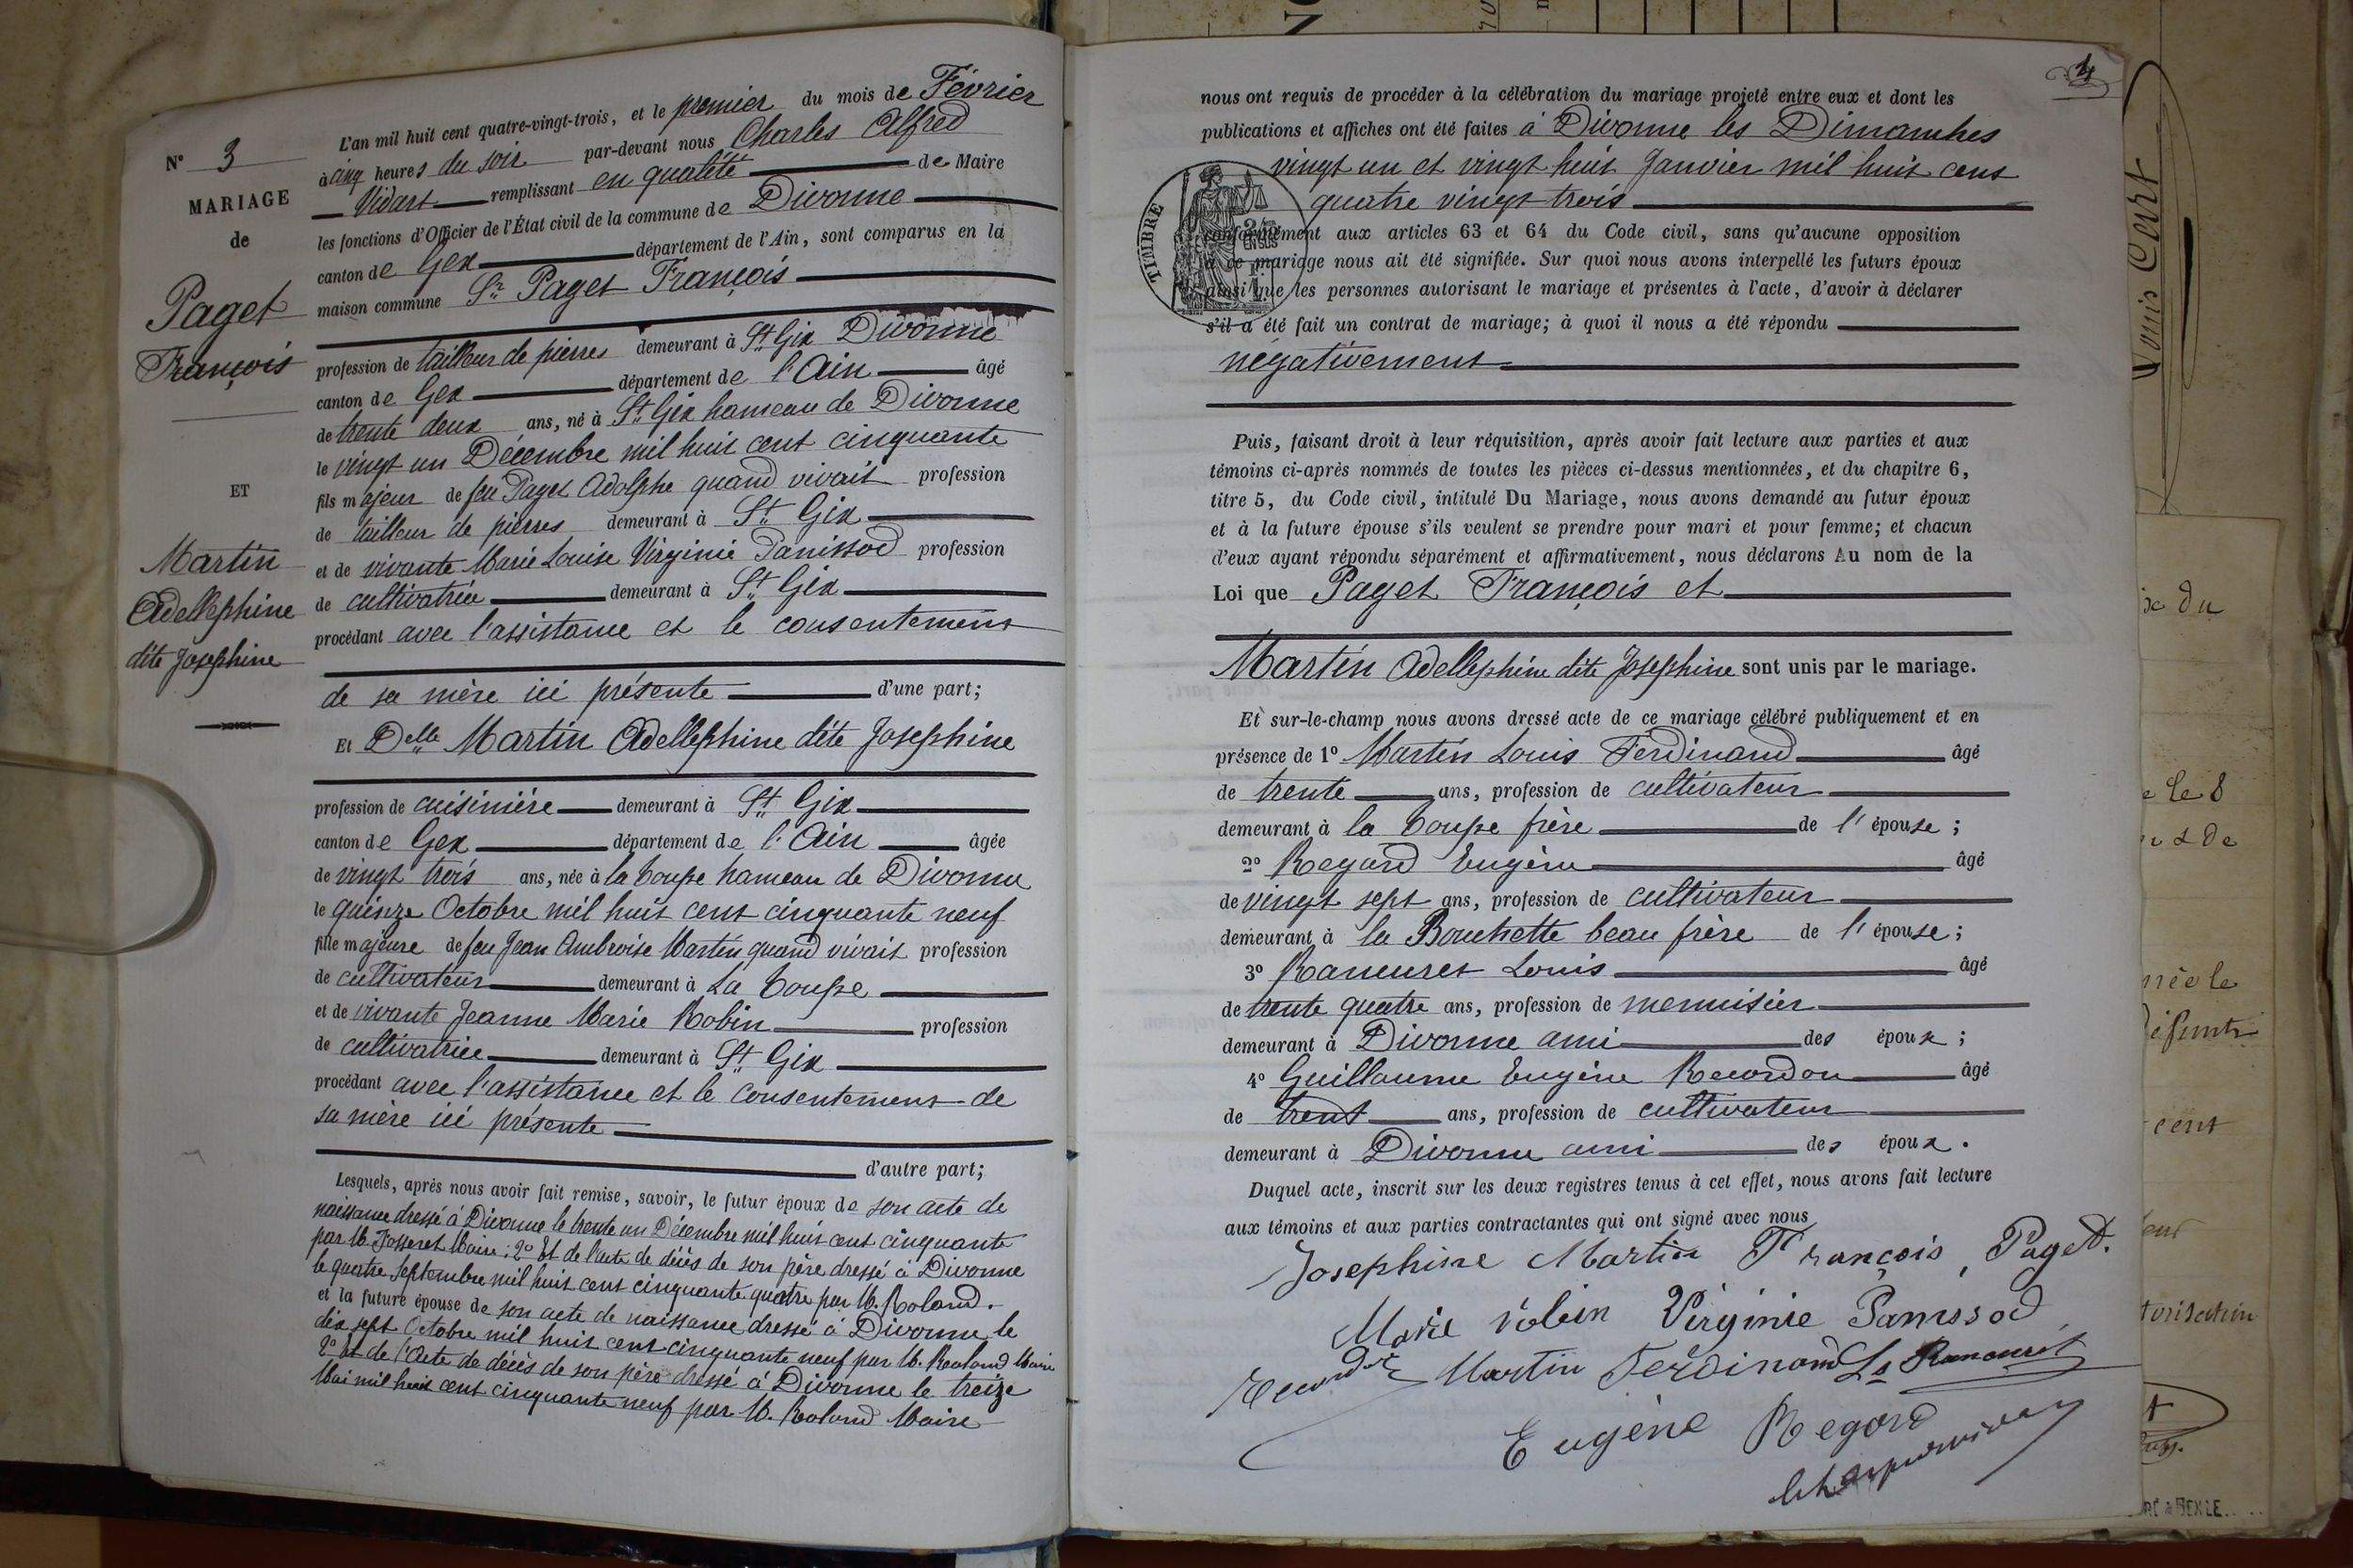 N° 3
MARIAGE
de
Paget
François
ET
Martin
Adellephine
dite Josephine
L'an mil huit cent quatre-vingt-trois, et le premier du mois de Février
à cinq heures du soir par-devant nous Charles Alfred
Vidart remplissant en qualité de Maire
les fonctions d'Officier de l'État civil de la commune de Divonne
canton de Gex département de l'Ain, sont comparus en la
maison commune Sr Paget François
profession de tailleur de pierres demeurant à St Gix Divonne
canton de Gex département de l'Ain âgé
de trente deux ans, né à St Gix hameau de Divonne
le vingt un Décembre mil huit cent cinquante
fils majeur de feu Paget Adolphe quand vivait profession
de tailleur de pierres demeurant à St Gix
et de vivante Marie Louise Virginie Panissod profession
de cultivatrice demeurant à St Gix
procédant avec l'assistance et le consentement
de sa mère ici présente d'une part;
Et Delle Martin Adellephine dite Josephine
profession de cuisinière demeurant à St Gix
canton de Gex département de l'Ain âgée
de vingt trois ans, née à la Coupe hameau de Divonne
le quinze Octobre mil huit cent cinquante neuf
fille majeure de feu Jean Ambroise Martin quand vivait profession
de cultivateur demeurant à La Coupe
et de vivante Jeanne Marie Robin profession
de cultivatrice demeurant à St Gix
procédant avec l'assistance et le consentement de
sa mère ici présente
d'autre part;
Lesquels, après nous avoir fait remise, savoir, le futur époux de son acte de
naissance dressé à Divonne le trente un Décembre mil huit cent cinquante
par M. Josseret Maire; 2° Et de l'acte de décès de son père dressé à Divonne
le quatre Septembre mil huit cent cinquante quatre par M. Roland.
et la future épouse de son acte de naissance dressé à Divonne le
dix sept Octobre mil huit cent cinquante neuf par M. Rouland Maire
2° Et de l'Acte de décès de son père dressé à Divonne le treize
Mai mil huit cent cinquante neuf par M. Roland Maire
4
nous ont requis de procéder à la célébration du mariage projeté entre eux et dont les
publications et affiches ont été faites à Divonne les Dimanches
vingt un et vingt huit Janvier mil huit cent
quatre vingt trois
TIMBRE
conformément aux articles 63 et 64 du Code civil, sans qu'aucune opposition
à ce mariage nous ait été signifiée. Sur quoi nous avons interpellé les futurs époux
ainsi que les personnes autorisant le mariage et présentes à l'acte, d'avoir à déclarer
s'il a été fait un contrat de mariage; à quoi il nous a été répondu
négativement
Puis, faisant droit à leur réquisition, après avoir fait lecture aux parties et aux
témoins ci-après nommés de toutes les pièces ci-dessus mentionnées, et du chapitre 6,
titre 5, du Code civil, intitulé Du Mariage, nous avons demandé au futur époux
et à la future épouse s'ils veulent se prendre pour mari et pour femme; et chacun
d'eux ayant répondu séparément et affirmativement, nous déclarons Au nom de la
Loi que Paget François et
Martin Adellephine dite Josephine sont unis par le mariage.
Et sur-le-champ nous avons dressé acte de ce mariage célébré publiquement et en
présence de 1° Martin Louis Ferdinand âgé
de trente ans, profession de cultivateur
demeurant à la Coupe frère de l'épouse;
2° Regard Eugène âgé
de vingt sept ans, profession de cultivateur
demeurant à la Bouchette beau frère de l'épouse;
3° Ramuret Louis âgé
de trente quatre ans, profession de menuisier
demeurant à Divonne ami des époux;
4° Guillaume Eugène Recordon âgé
de trent ans, profession de cultivateur
demeurant à Divonne ami des époux.
Duquel acte, inscrit sur les deux registres tenus à cet effet, nous avons fait lecture
aux témoins et aux parties contractantes qui ont signé avec nous
Josephine Martin François Paget.
Marie robin Virginie Panissod
Martin Ferdinand
Eugène Regard